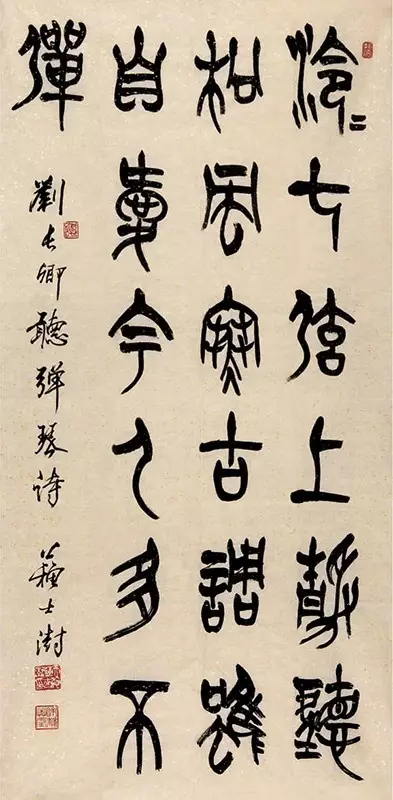 泠泠七弦上靜聽
松風寒古調雖
自愛今人多不
彈
劉長卿聽彈琴詩 蘇士澍